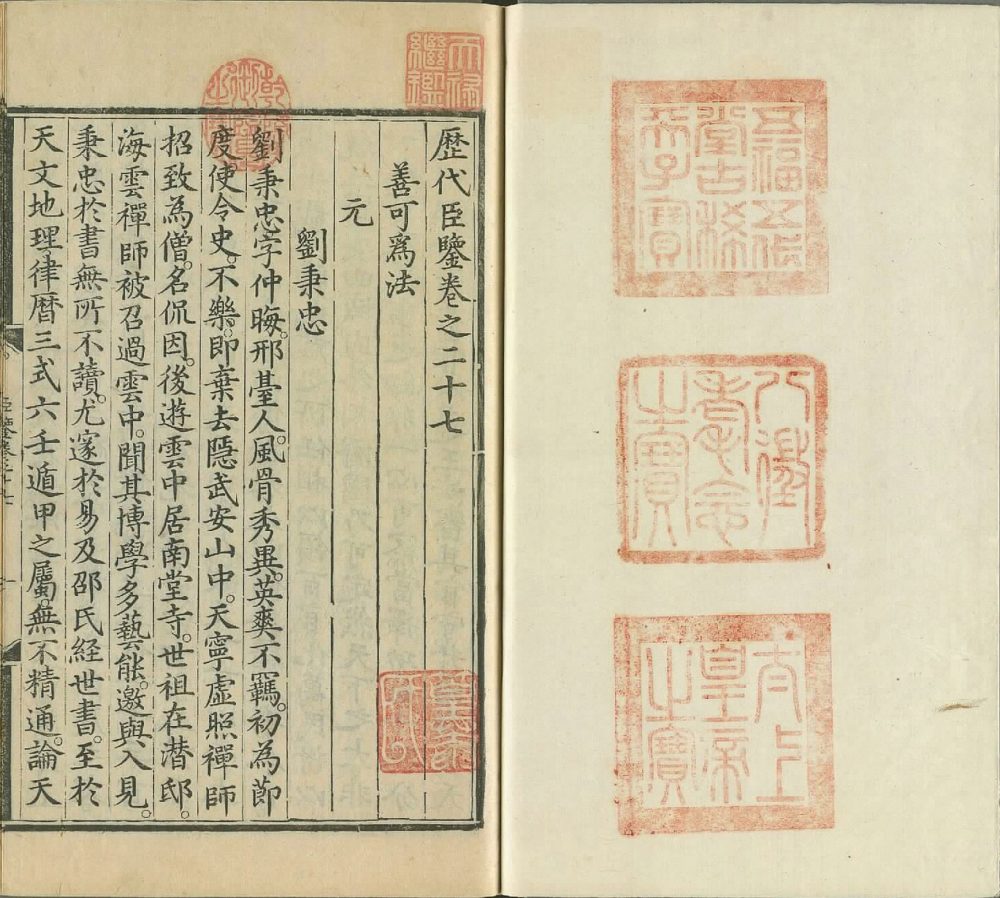 五福五代
堂古稀
天子寶
八徵
耄念
之寶
太上
皇帝
之寶
天祿
繼鑑
乾隆
御覽
之寶
歷代臣鑒卷之二十七
善可為法
元
劉秉忠
劉秉忠字仲晦。邢臺人。風骨秀異。英爽不羈。初為節
度使令史。不樂。即棄去隱武安山中。天寧虛照禪師
招致為僧。名侃因。後遊雲中居南堂寺。世祖在潛邸。
海雲禪師被召過雲中。聞其博學多藝能。邀與入見。
秉忠於書無所不讀。尤邃於易及邵氏経世書。至於
天文地理律曆三式六壬遁甲之屬。無不精通。論天
臣鑒卷之二十七
一